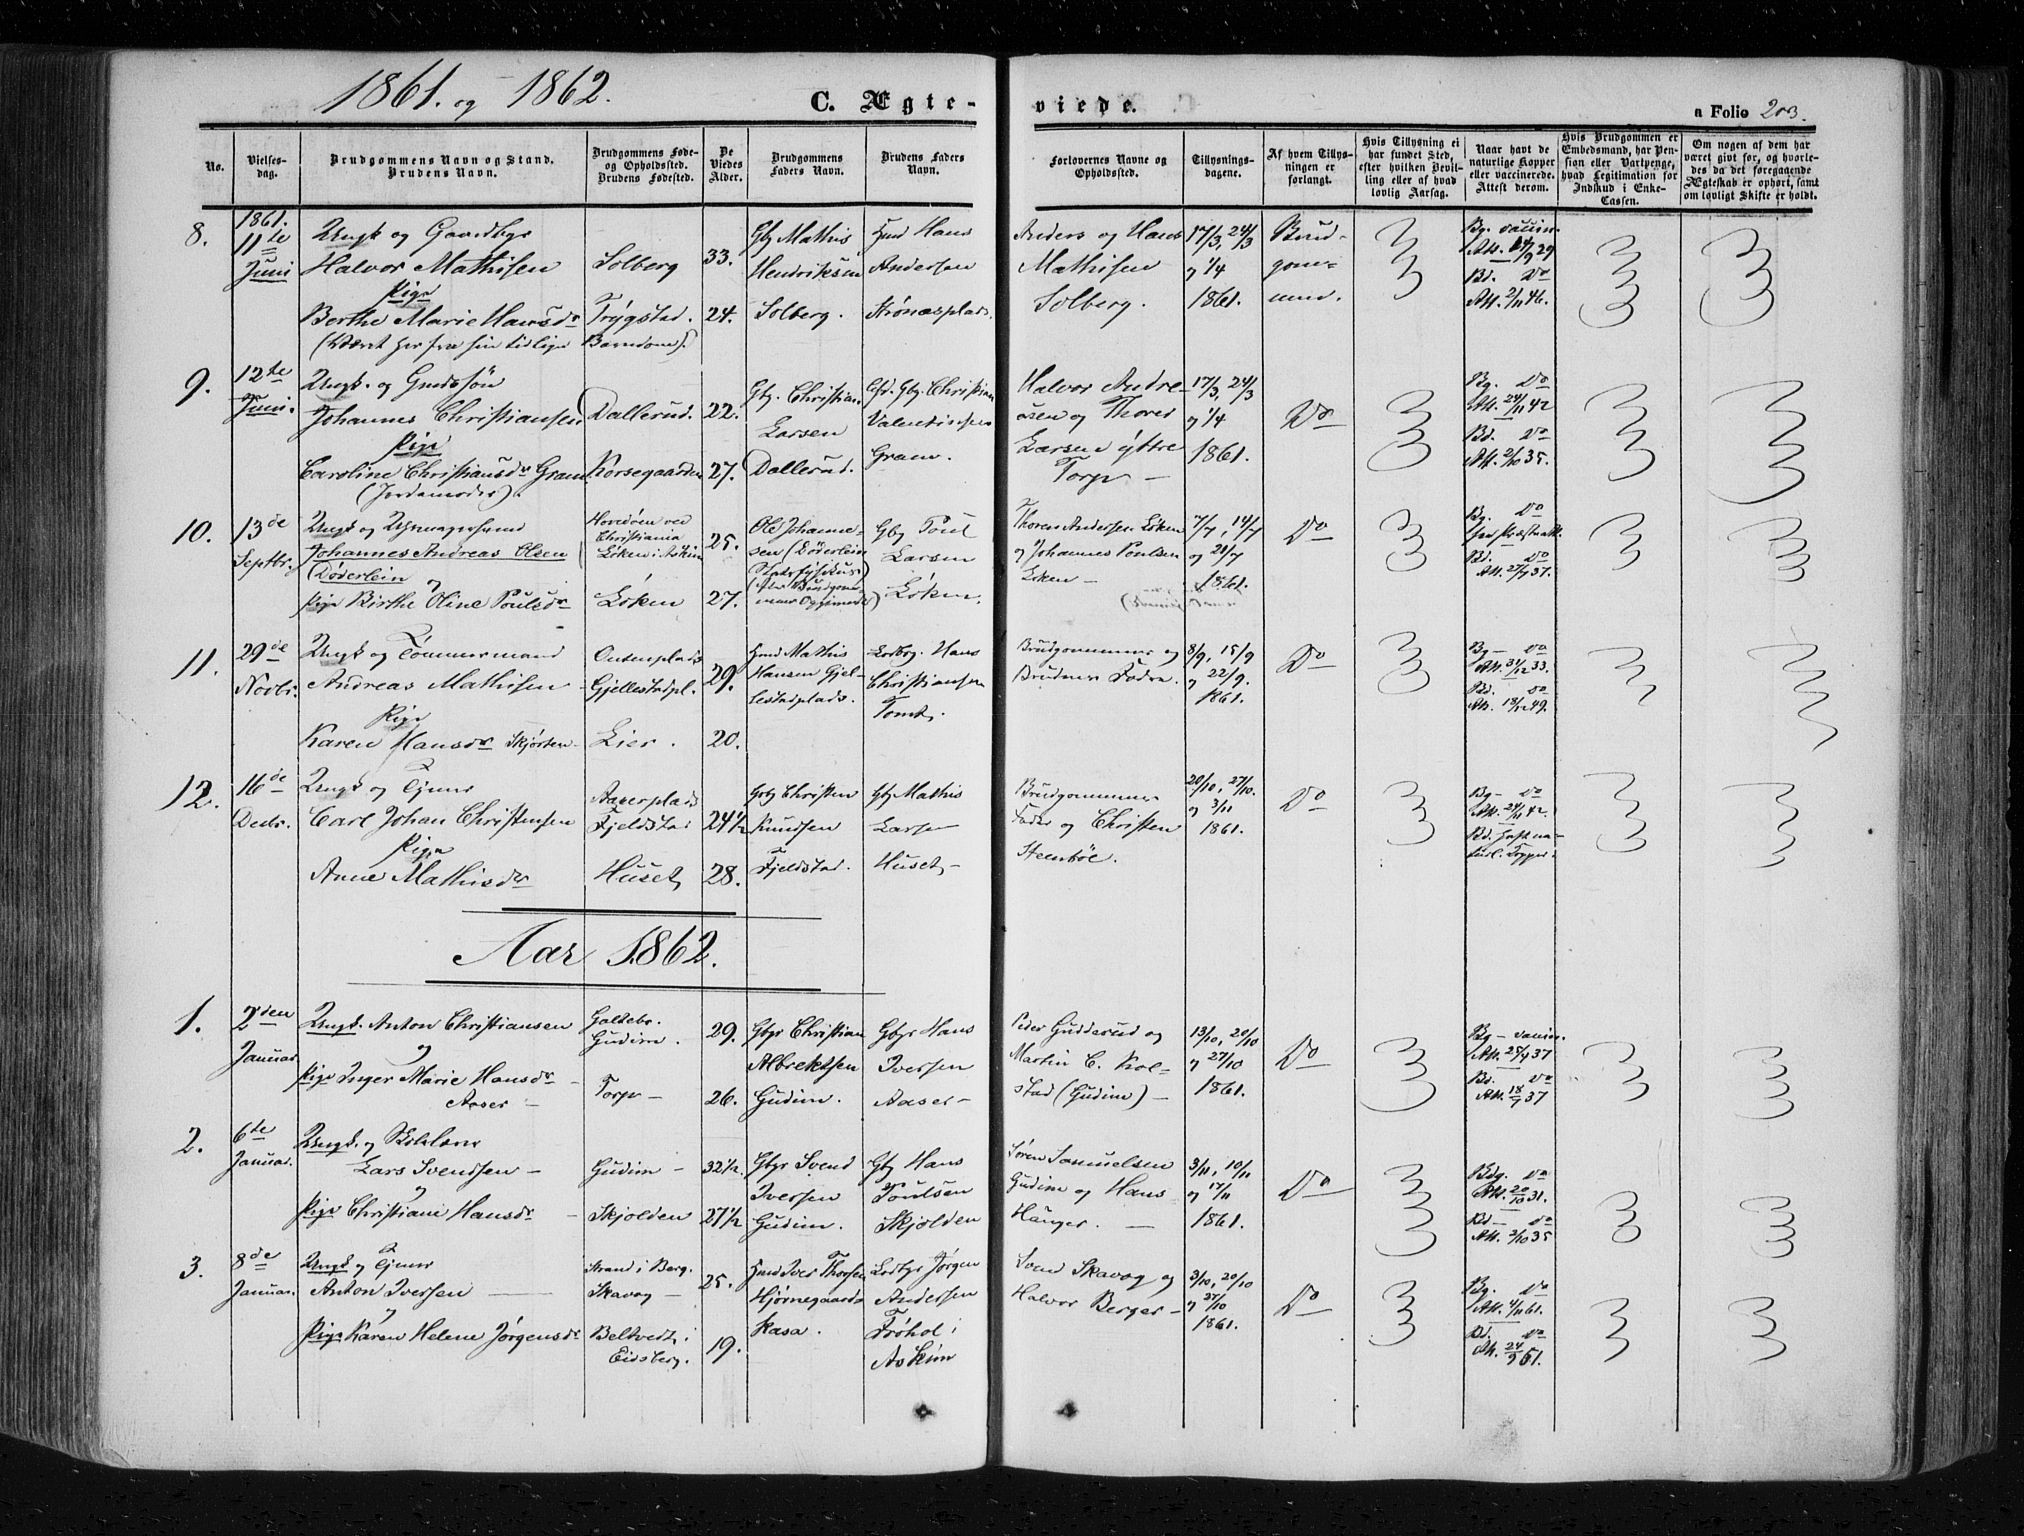 1861. og 1862.
C. Ægte-
viede.
a Folio 203.
No.
Vielses-
dag.
Brudgommens Navn og Stand.
Brudens Navn.
Brudgommens Føde-
og Opholdssted.
Brudens Fødested.
De
Viedes
Alder.
Brudgommens
Faders Navn.
Brudens Faders
Navn.
Forlovernes Navne og
Opholdssted.
Tillysnings-
dagene.
Af hvem Tillys-
ningen er
forlangt.
Hvis Tillysning ei
har fundet Sted,
efter hvilken Bevil-
ling eller af hvad
lovlig Aarsag.
Naar havt de
naturlige Kopper
eller vaccinerede.
Attest derom.
Hvis Brudgommen er
Embedsmand, har Pen-
sion eller Vartpenge,
hvad Legitimation for
Indskud i Enke-
Cassen.
Om nogen af dem har
været gift før, og hvorle-
des da det foregaaende
Ægteskab er ophørt, samt
om lovligt Skifte er holdt.
8.
1861.
11te
Juni
Ungk og Gaardbgr
Halvor Mathisen
Pige
Berthe Marie Hansdr
(Været her fra sin tidlige Barndom).
Solberg
Trygstad.
33.
24.
Gbg Mathis
Hendriksen
Solberg.
Hmd Hans
Andersen
Anders og Hans
Mathisen
Solberg.
17/3, 24/3
og 1/4
1861.
Brud-
gom-
men.
Bg. vaccin.
Bd. Do
Att. 2/11 46.
9.
12te
Juni.
Ungk. og Grdssøn
Johannes Christiansen
Pige
Caroline Christiansdr Gram
(Jordemoder).
Dallerud.
Korsegaarden
22.
27.
Gbg. Christian
Larsen
Dallerud.
Gbg. Christian
Valentinsen
Gram.
Halvor Andre-
asen og Thored
Larsen yttre
Torp —
17/3, 24/3
og 1/4
1861.
Do
Bg. Do
Att. 24/11 42
Bd. Do
Att. 2/10 35.
10.
13de
Septbr.
Ungk og
Johannes Andreas Olsen
(Døderlein
og
Pige Birthe Oline Poulsdr
Hovedøen ved
Christiania
Løken i Askim
Løken
25.
27.
Ole Johanne-
sen (Døderlein
Gbg Poul
Larsen
Løken.
Thoren Andersen Løken
og Johannes Poulsen
Løken —
7/7, 14/7
og 21/7
1861.
Do
Bg. Do
Bd. Do
Att. 27/9 37.
11.
29de
Novbr.
Ungk og Tømmermand
Andreas Mathisen
Pige
Karen Hansdr Skjørten
Gjellestadpl.
Lier.
29.
20.
Hmd Mathis
Hansen Gjel-
lestadplads.
Hans
Christiansen
Tomt.
Brudgommens og
Brudens Fædre.
8/9, 15/9
og 22/9.
1861.
Do
Bg — Do
Att. 31/12 33.
Bd. Do
12.
16de
Decbr.
Ungk og Tjener
Carl Johan Christensen
Pige
Anne Mathisdr
Aaserplads
Fjeldstad
Huset
24½
28.
Gbg Christen
Knudsen
Fjeldstad.
Gbg Mathis
Larsen
Huset —
Brudgommens
Fader og Christen
Steenbøl.
20/10, 27/10.
og 3/11
1861.
Do
Bg — Do
Att. 24/11 42.
Bd. haft na-
turl. Kopper.
Aar 1862.
1.
2den
Januar.
Ungk. Anton Christiansen
og
Pige Inger Marie Hansdr
Aaser —
Galtebo.
Gudim.
Torp —
29.
26.
Gbgr Christian
Albrektsen
Gudim.
Gbgr Hans
Iversen
Aaser —
Peder Gudderud og
Martin C. Kol-
stad (Gudim) —
13/10, 20/10
og 27/10
1861.
Do
Bg — vaccin.
Att. 25/9 37
Bd. Do
Att. 18/9 37
2.
6te
Januar.
Ungk. og Skolelærer
Lars Svendsen —
og
Pige Christiane Hansdr —
Gudim —
Skjolden
32½
27½
Gbgr Svend
Iversen
Gudim.
Gbg Hans
Poulsen
Skjolden
Søren Samuelsen
Gudim og Hans
Hanger. —
3/11, 10/11
og 17/11
1861.
Do
Bdg. Do
Att. 20/10 31.
Bd — Do
Att. 2/10 35
3.
8de
Januar.
Ungk og Tjener
Anton Iversen —
og
Pige Karen Helene Jørgensdr
Strand i Berg.
Skavog —
Beltvedt i
Eidsberg.
25.
19.
Hmd Iver Thorsen
Hjørnegaards
Kasa.
Lodbgr Jørgen
Andersen
Frøhol i
Askim
Svend Skavog og
Halvor Berger —
3/10, 20/10
og 27/10
1861.
Do
Bg. Do
Att. 4/11 61.
Bd. Do
Att. 24/9 61.